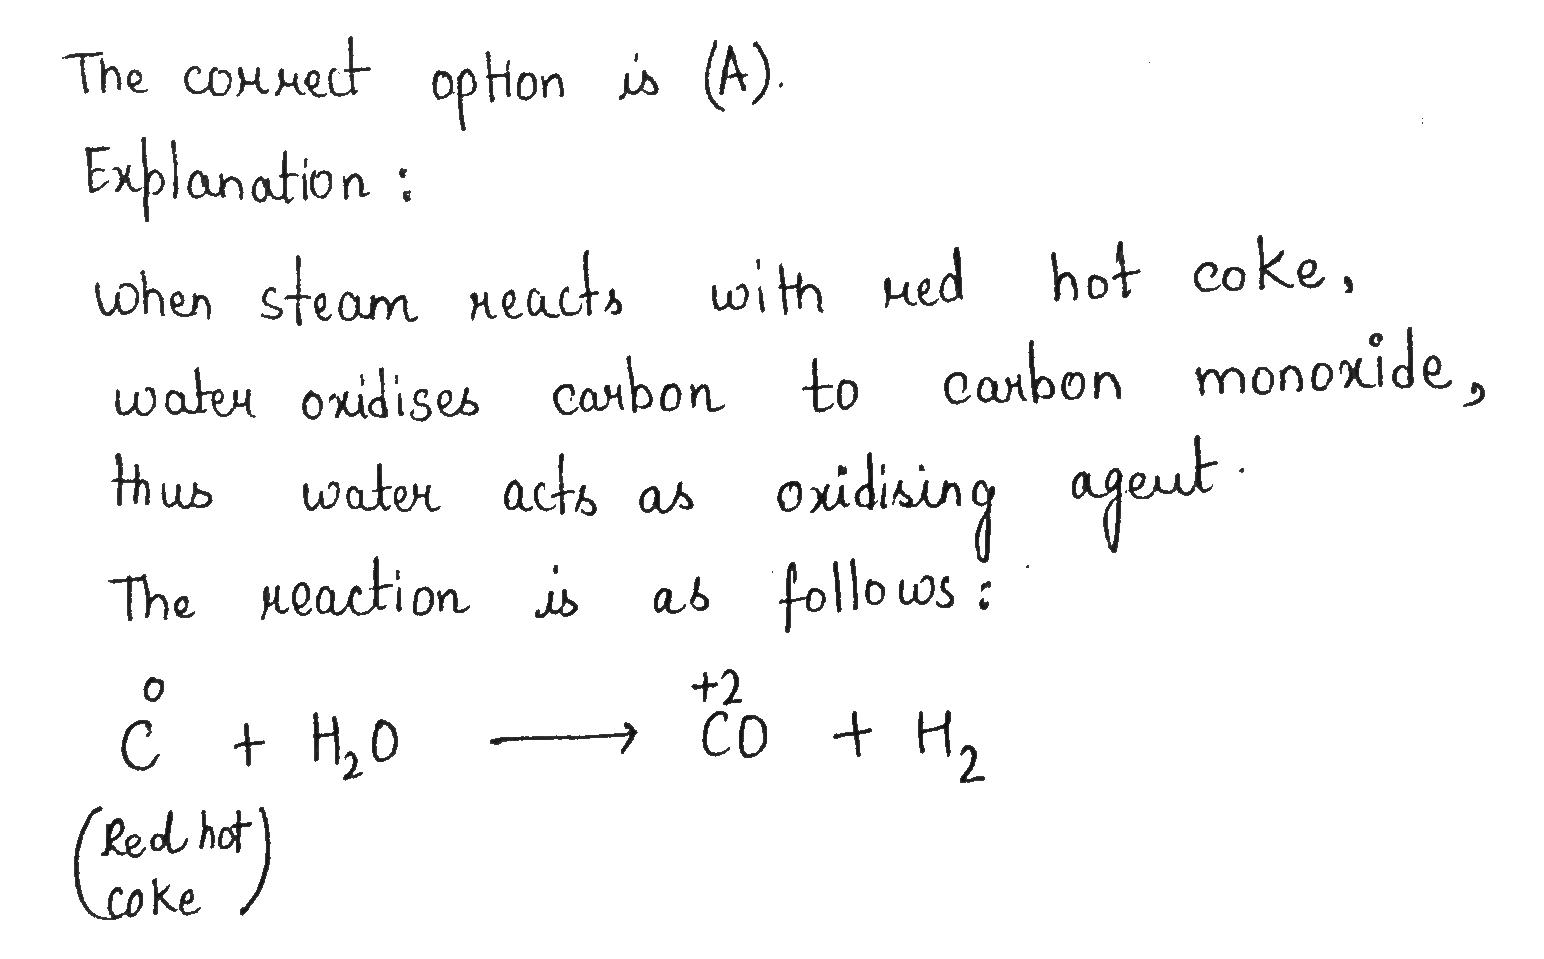 The correct option is (A).
Explanation :
when steam reacts with red hot coke,
water oxidises carbon to carbon monoxide,
thus water acts as oxidising agent.
The reaction is as follows :
0 +2
C + H₂O ⟶ CO + H₂
(Red hot
coke)